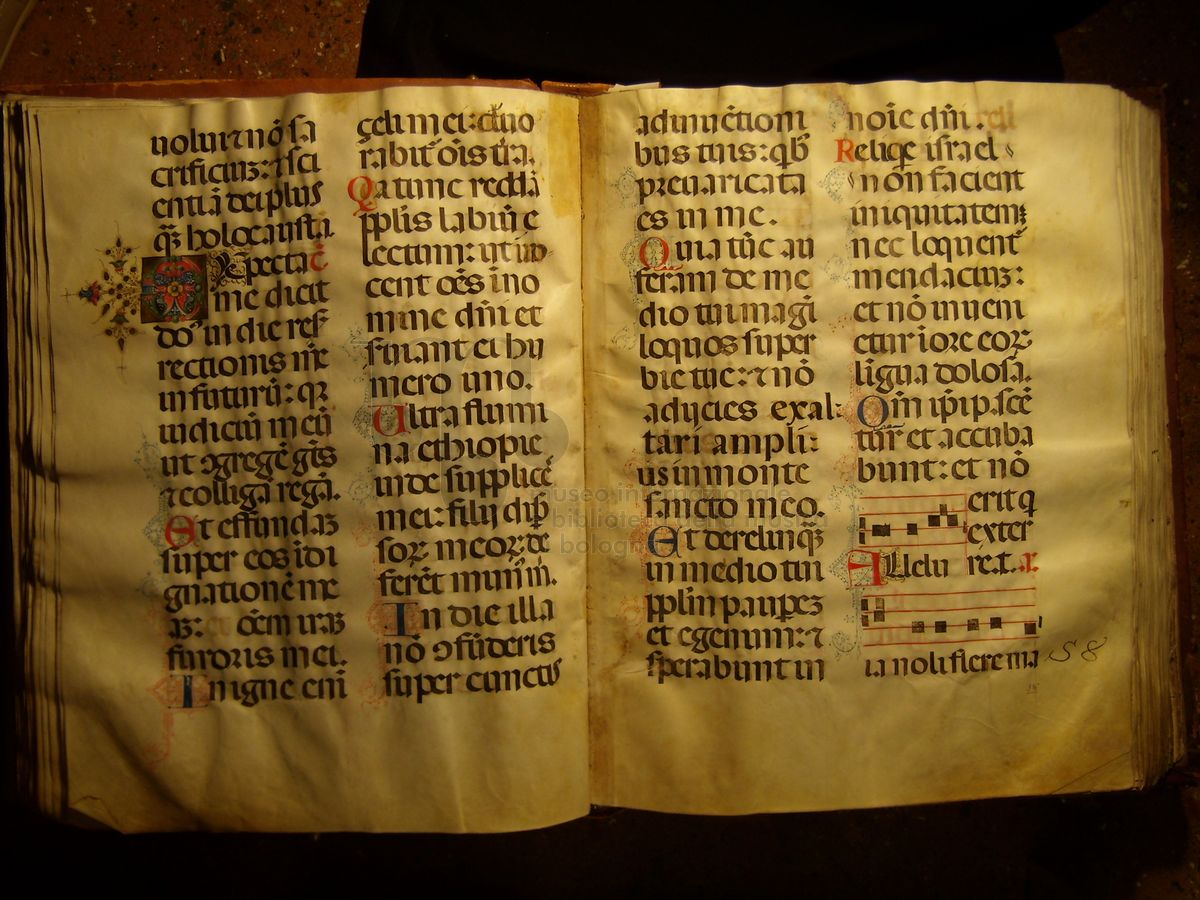 uolui ⁊ nō sa
crificiuꝫ: ⁊ sci
entiā dei plus
qͣꝫ holocausta.
Expecta
me dicit
dn̄s in die res
rectionis me
in futurū: qꝛ
iudiciū meū
ut ꝯgregē gētes
⁊ colligā regā.
Et effundaꝫ
super eos īdi
gnationē me
aꝫ: oēm iraꝫ
furoris mei.
In igne enī
ꝫeli mei: deuo
rabit̄ oīs t̄ra.
Qa tunc reddā
ppl̄is labiū e
lectum: ut īuo
cent oēs ī no
mine dn̄i et
seruiant ei hu
mero uno.
Ultra flumi
na ethiopie
inde supplicē
mei: filij disp̄
soꝝ meoꝝ de
ferēt mun̄ m̄.
In die illa
nō ꝯfūderis
super cunctis
adinuētioni
bus tuis: qb̄
preuaricata
es in me.
Quia tūc au
feram de me
dio tui magi
loquos super
bie tue: ⁊ nō
adijcies exal:
tari ampli:
us in monte
sancto meo.
Et derelinqͣꝫ
in medio tui
ppl̄m paupeꝫ
et egenum: ⁊
sperabunt in
noīe dn̄i.
Reliqe israel
non facient
iniquitatem:
nec loquent̄
mendaciuꝫ:
et nō inueni
etur ī ore eoꝝ
līgua dolosa.
Qm̄ ip̄i pascē
tur et accuba
bunt: et nō
erit q
exter
Allelu re.t.
ia noli flere ma
58
museo internazionale
biblioteca della musica
bologna